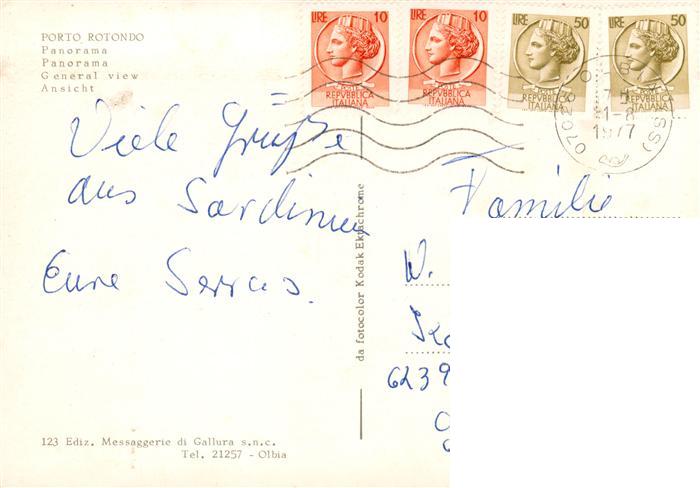 PORTO ROTONDO
Panorama
Panorama
General view
Ansicht
LIRE 10
POSTE
REPVBBLICA
ITALIANA
LIRE 10
POSTE
REPVBBLICA
ITALIANA
LIRE 50
POSTE
REPVBBLICA
ITALIANA
LIRE 50
POSTE
REPVBBLICA
ITALIANA
1977
(SS)
Viele Grüße
aus Sardinien
Eure
da fotocolor Kodak Ektachrome
Familie
W.
6239
123 Ediz. Messaggerie di Gallura s.n.c.
Tel. 21257 - Olbia